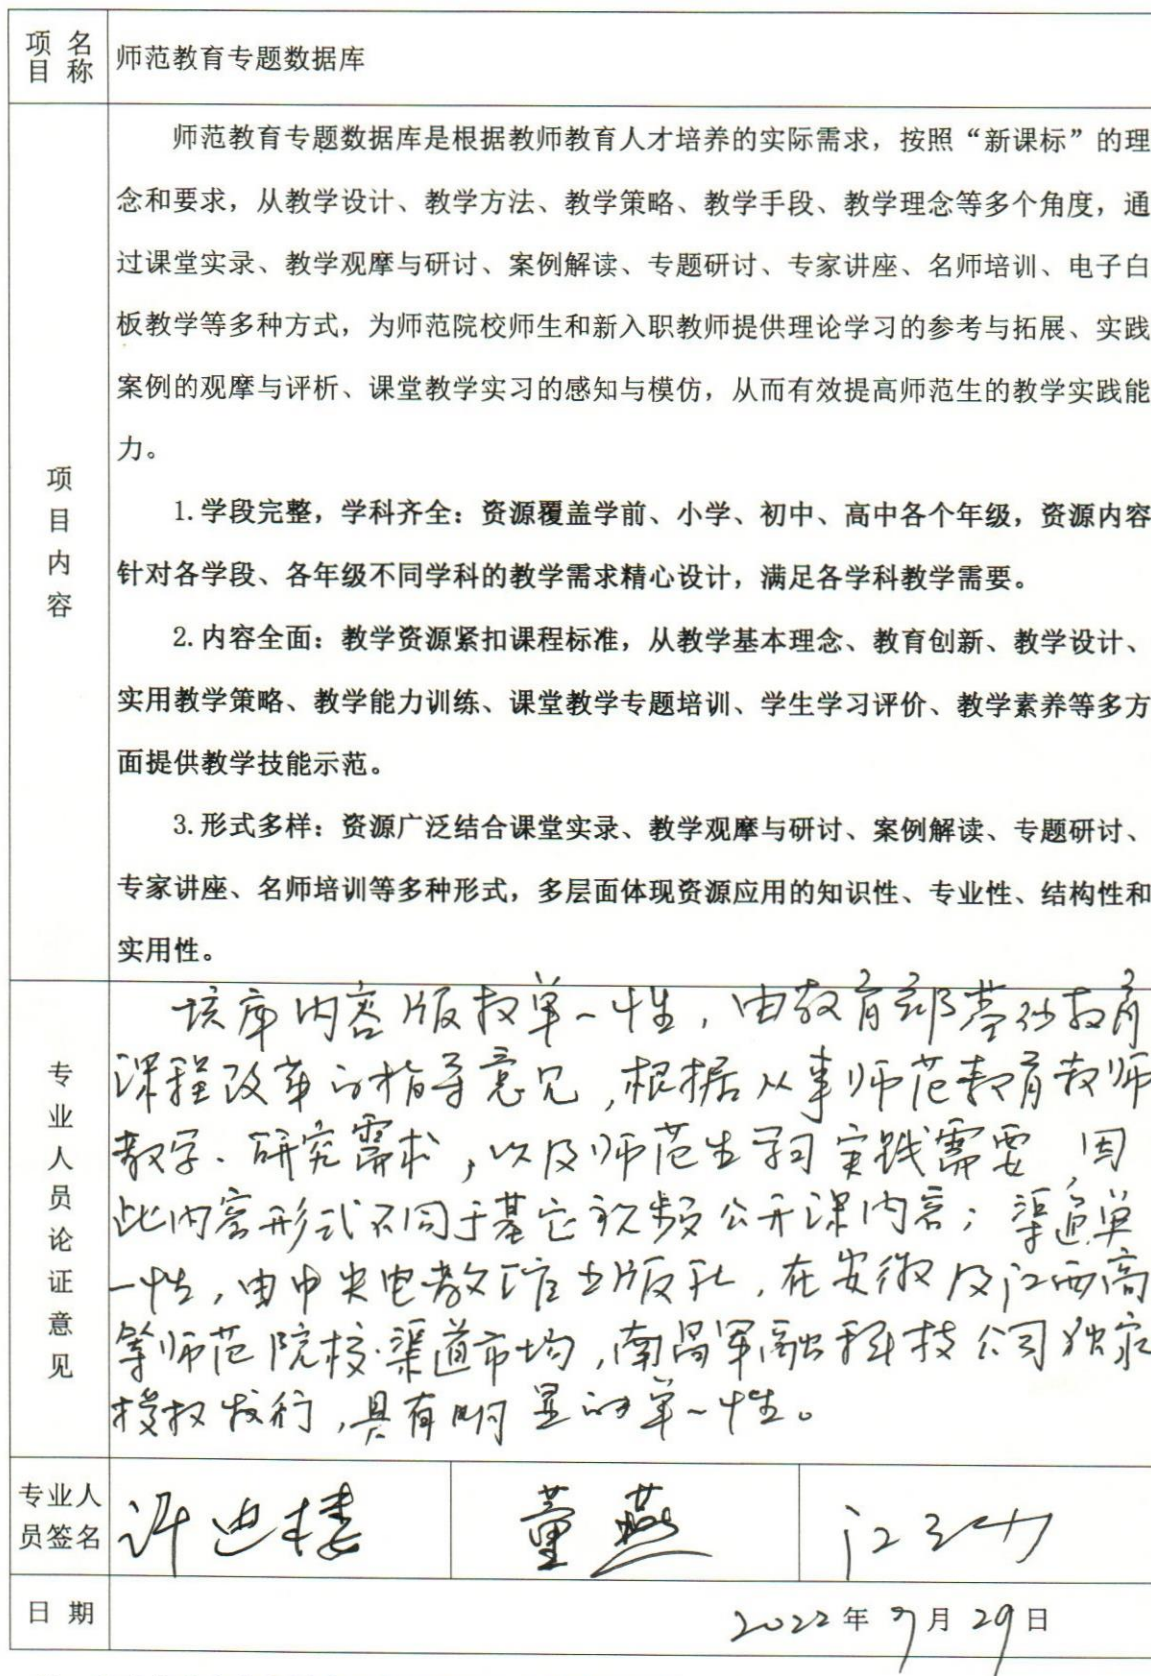 项目名称
师范教育专题数据库
项目内容
师范教育专题数据库是根据教师教育人才培养的实际需求，按照“新课标”的理
念和要求，从教学设计、教学方法、教学策略、教学手段、教学理念等多个角度，通
过课堂实录、教学观摩与研讨、案例解读、专题研讨、专家讲座、名师培训、电子白
板教学等多种方式，为师范院校师生和新入职教师提供理论学习的参考与拓展、实践
案例的观摩与评析、课堂教学实习的感知与模仿，从而有效提高师范生的教学实践能
力。
1.学段完整，学科齐全：资源覆盖学前、小学、初中、高中各个年级，资源内容
针对各学段、各年级不同学科的教学需求精心设计，满足各学科教学需要。
2.内容全面：教学资源紧扣课程标准，从教学基本理念、教育创新、教学设计、
实用教学策略、教学能力训练、课堂教学专题培训、学生学习评价、教学素养等多方
面提供教学技能示范。
3.形式多样：资源广泛结合课堂实录、教学观摩与研讨、案例解读、专题研讨、
专家讲座、名师培训等多种形式，多层面体现资源应用的知识性、专业性、结构性和
实用性。
专业人员论证意见
该库内容版权单一性，由教育部基础教育
课程改革的指导意见，根据从事师范教育教师
教学、研究需求，以及师范生学习实践需要，因
此内容形式不同于其它视频公开课内容；渠道单
一性，由中央电教馆出版社，在安徽及江西高
等师范院校渠道市场，南昌军融科技公司独家
授权发行，具有明显的单一性。
专业人员签名
许 董燕 江
日期
2022年9月29日